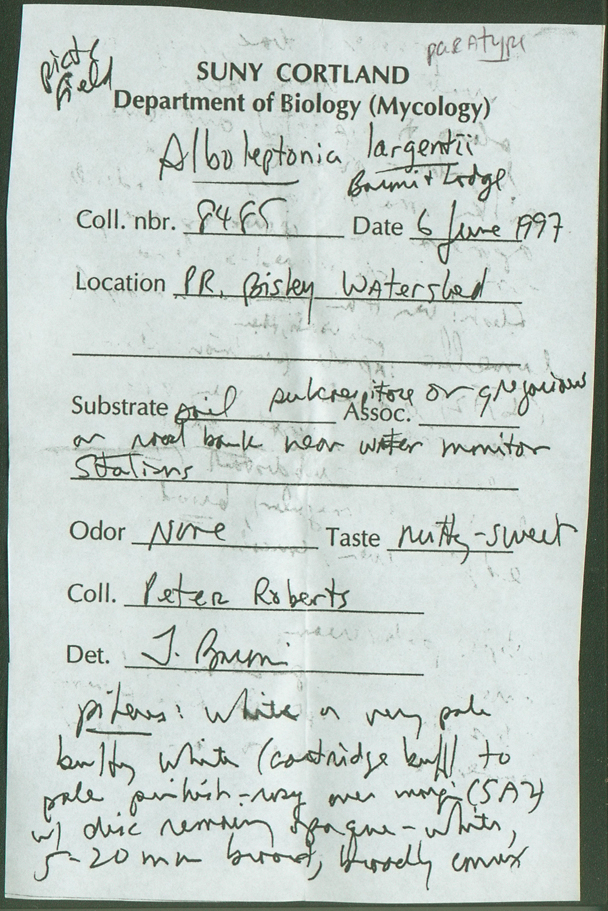 pict field
paratype
SUNY CORTLAND
Department of Biology (Mycology)
Alboleptonia largentii
Baroni + Lodge
Coll. nbr. 8485 Date 6 June 1997
Location PR. Bisley Watershed
Substrate soil subcespitose or gregarious Assoc.
on road bank near water monitor
Stations
Odor None Taste nutty-sweet
Coll. Peter Roberts
Det. T. Baroni
pileus: white or very pale
buffy white (cartridge buff) to
pale pinkish-rosy over margin (5A2)
w/ disc remaining opaque-white,
5-20 mm broad, broadly convex